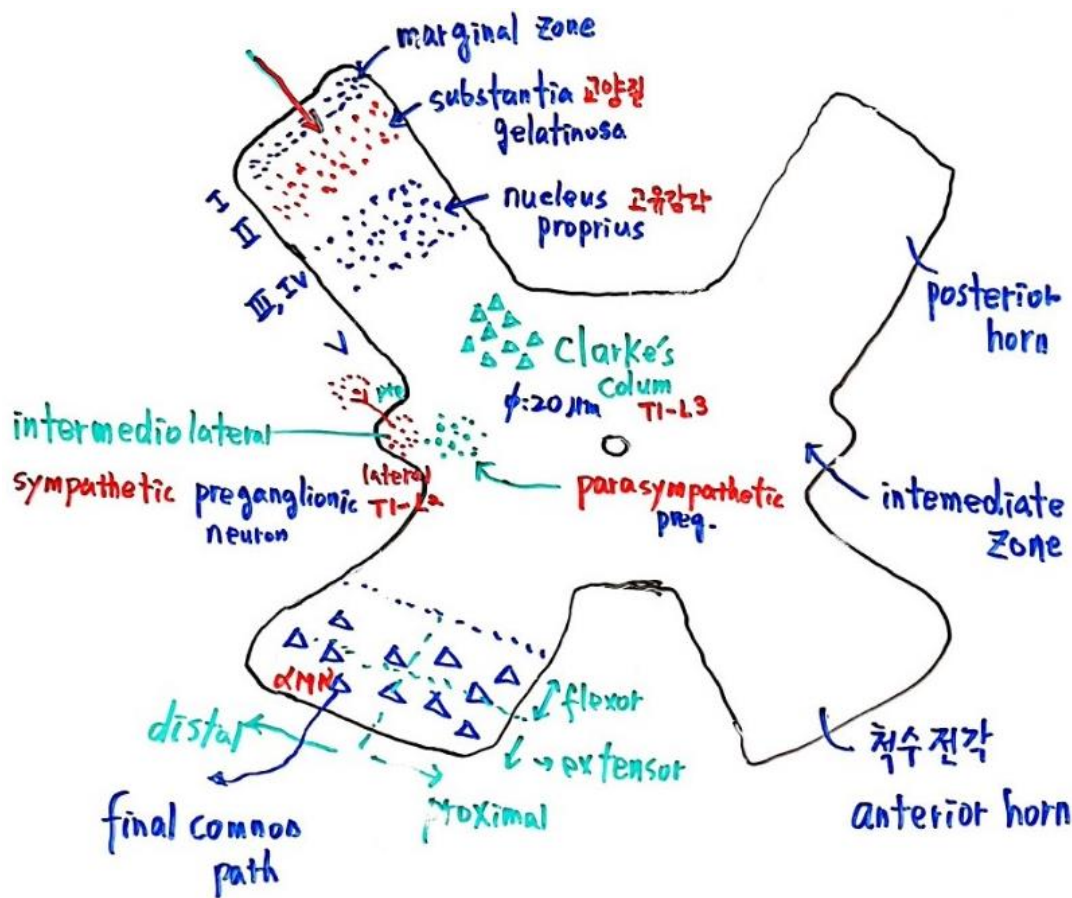 marginal zone
substantia 교양질
gelatinosa
nucleus 고유감각
proprius
I
II
III, IV
V
posterior
horn
Clarke's
Colum
φ:20μm T1-L3
pre
intermediolateral
(lateral)
sympathetic preganglionic T1-L2
neuron
parasympathetic
preg.
intemediate
zone
αMN
flexor
distal
→ extensor
proximal
final common
path
척수 전각
anterior horn